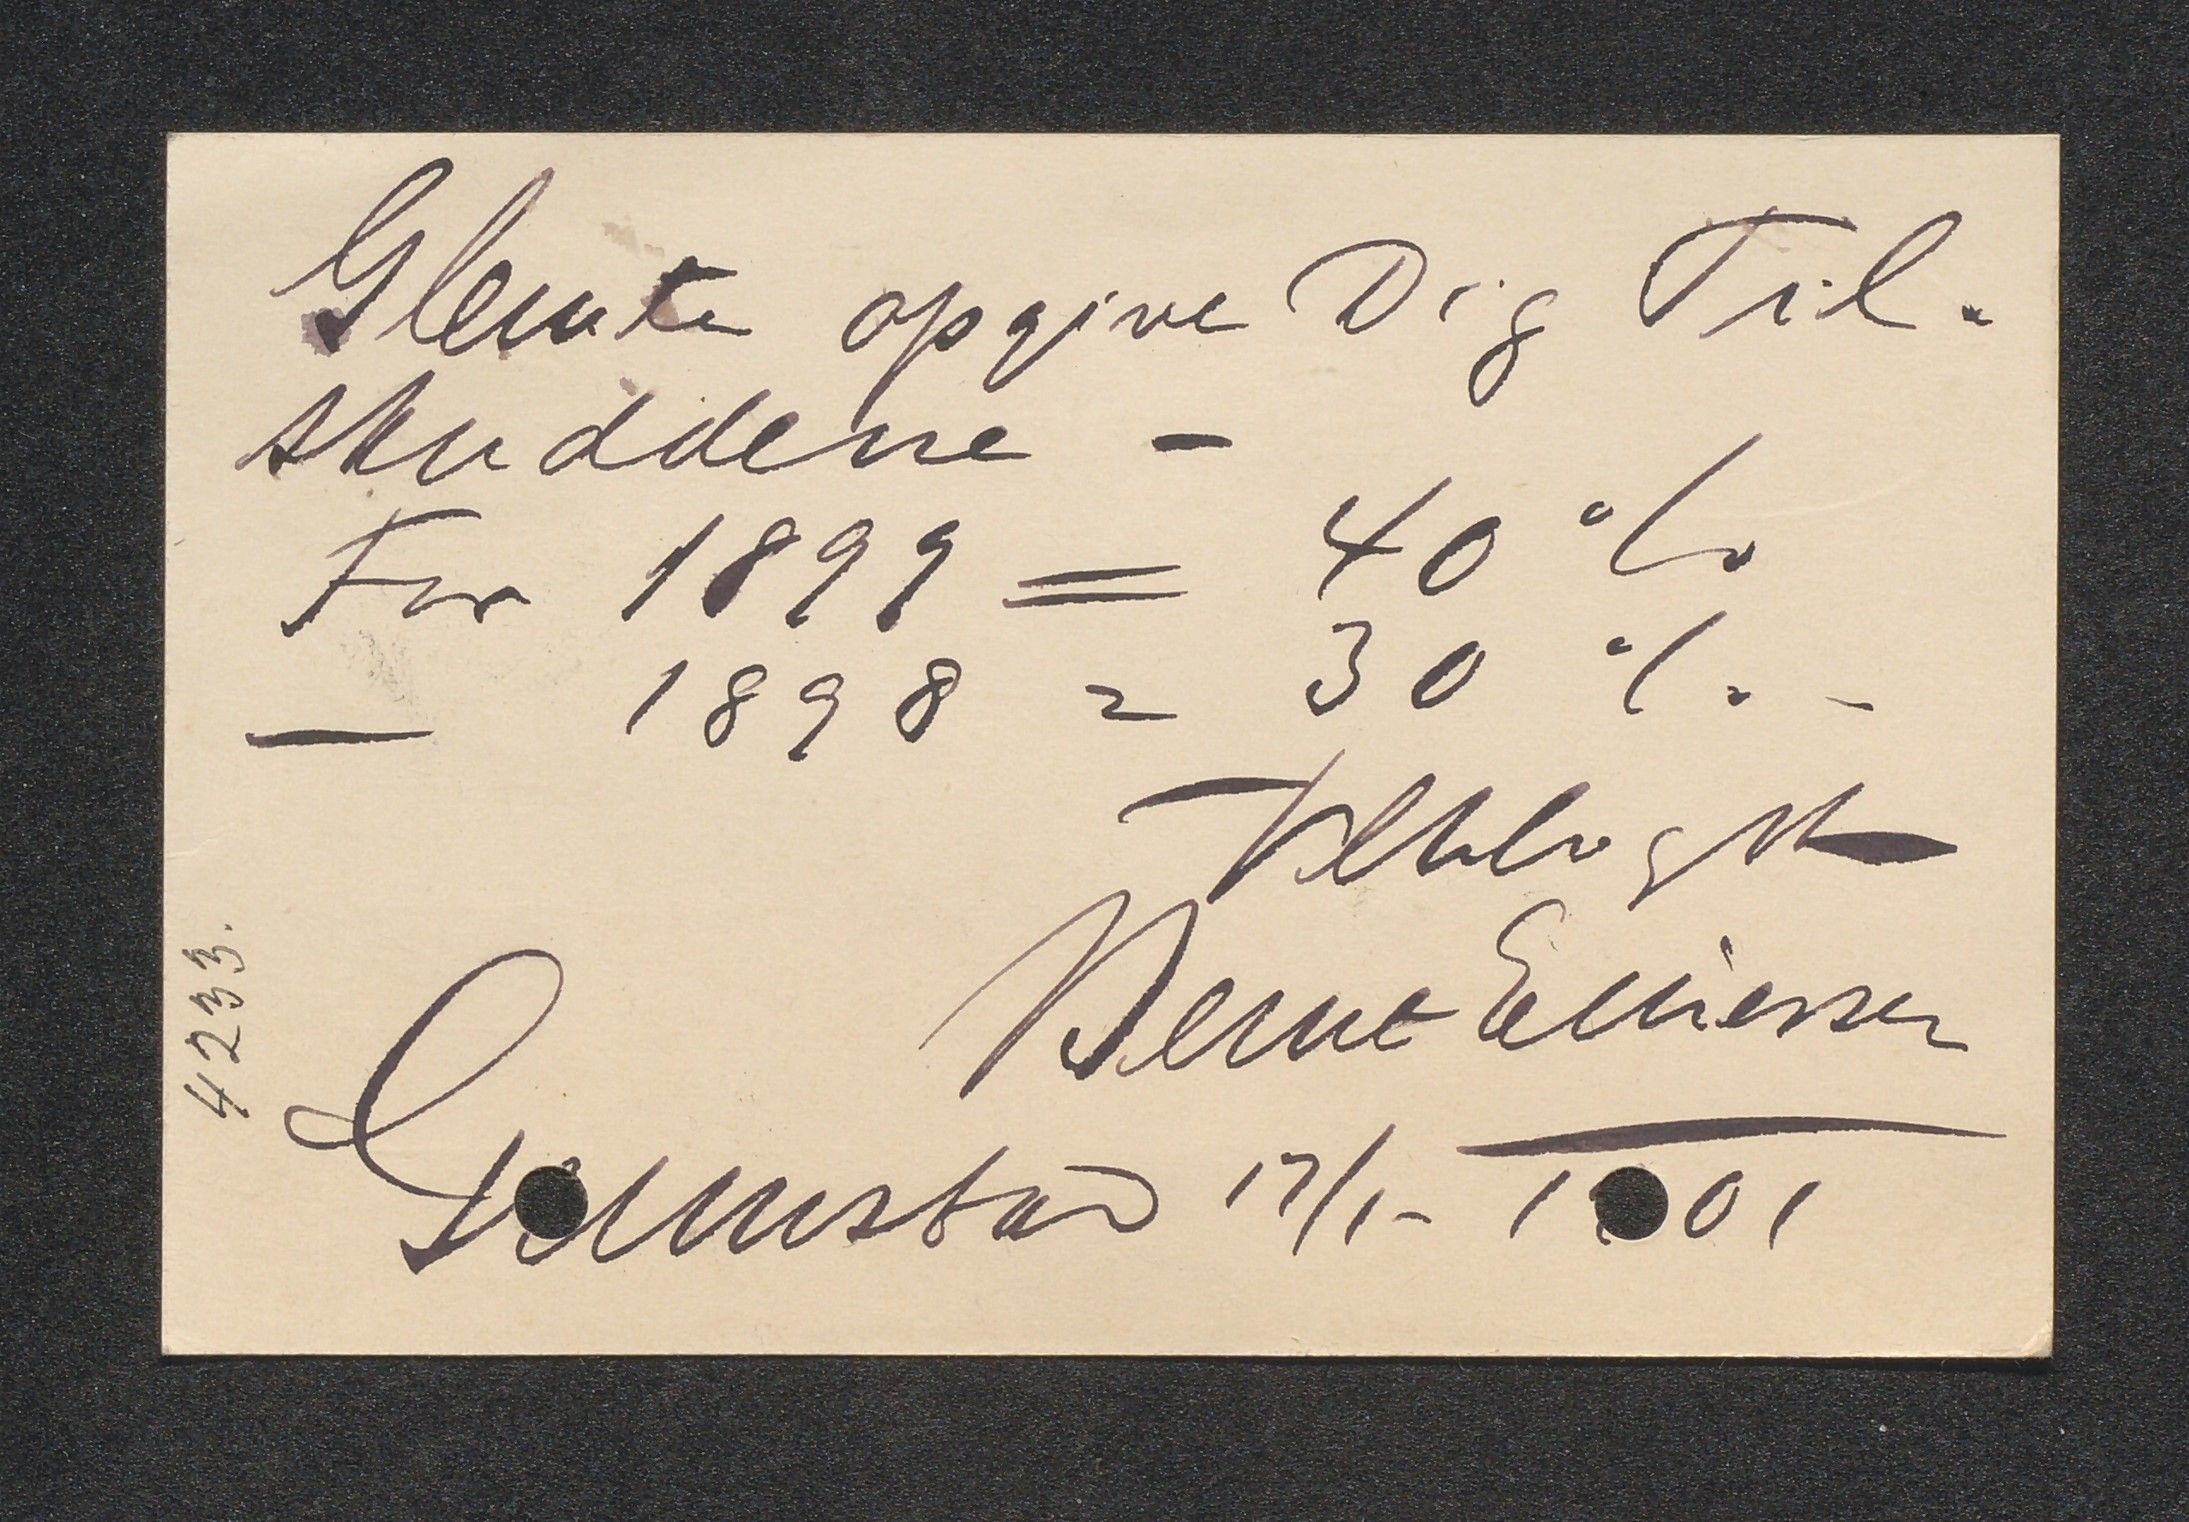 Glemte opgive Dig Til-
skuddene -
For 1899 = 40 %
— 1898 = 30 % -
Venligst
Bernt
Grimstad 17/1 - 1901
4233.